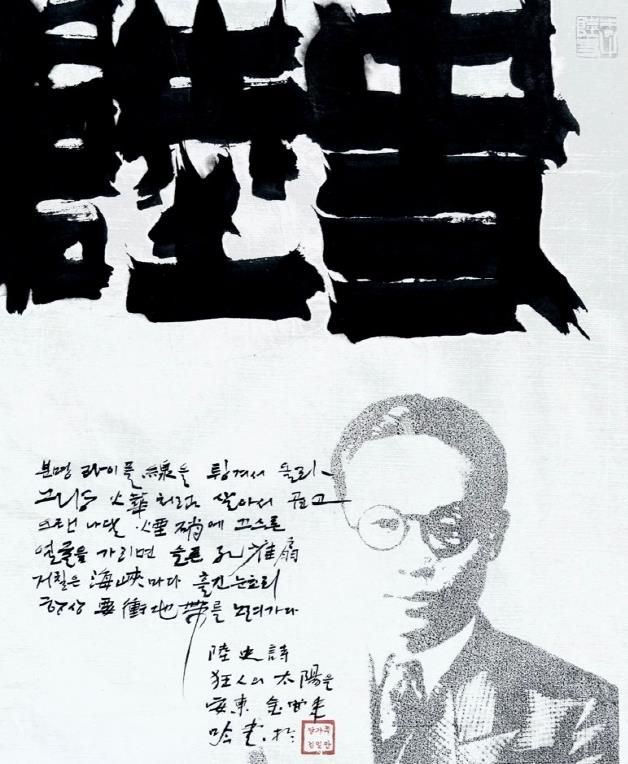 분명 라이플 線을 튕겨서 올라
그냥 火華처럼 살아서 곱고
오랜 나달 煙硝에 끄스른
얼굴을 가리면 슬픈 孔雀扇
거칠은 海峽마다 흘긴 눈초리
항상 要衝地帶를 노려가다
陸史 詩
狂人의 太陽을
安東